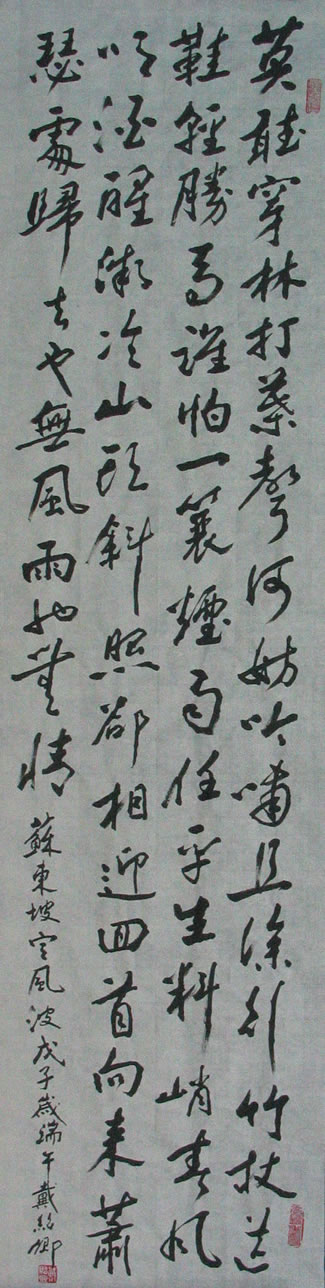 莫聽穿林打葉聲何妨吟嘯且徐行竹杖芒
鞋輕勝馬誰怕一蓑煙雨任平生料峭春風
吹酒醒微冷山頭斜照卻相迎回首向來蕭
瑟處歸去也無風雨也無情
蘇東坡定風波戊子歲端午戴紹卿